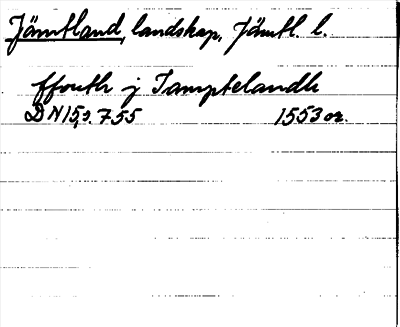 Jämtland, landskap, Jämtl. l.
ffouth j Jamptelandh
DN 15, s. 755 1553 or.